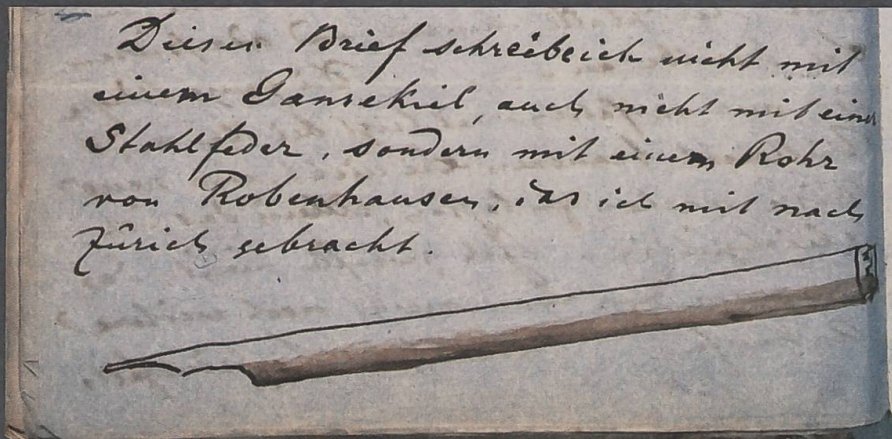 Diesen Brief schreibe ich nicht mit
einem Gansekiel, auch nicht mit einer
Stahlfeder, sondern mit einem Rohr
von Robenhausen, das ich mit nach
Zürich gebracht.